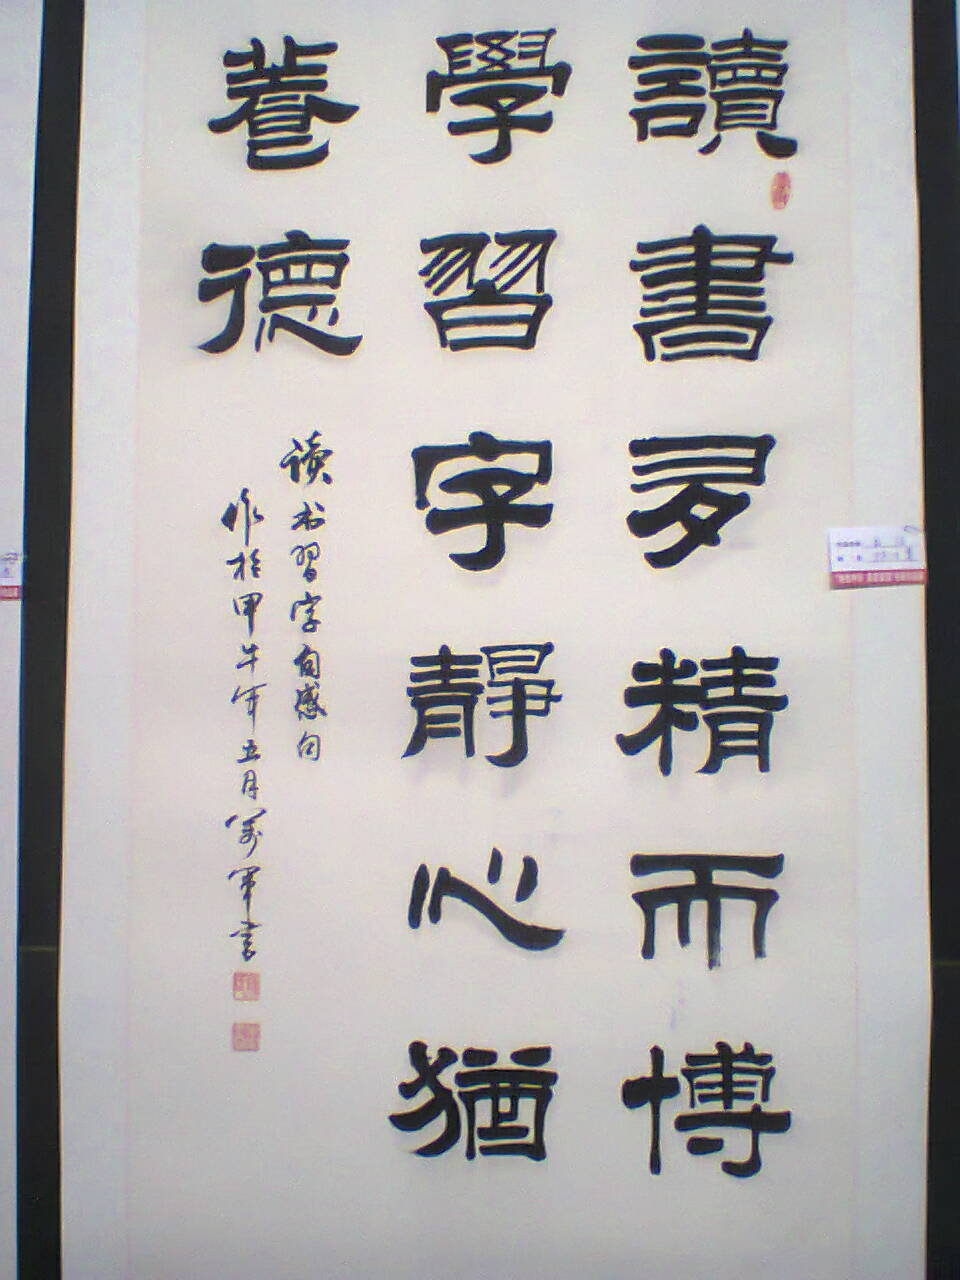 讀書多精而博
學習字靜心猶
養德
读书習字自感句
作於甲午年五月万军书